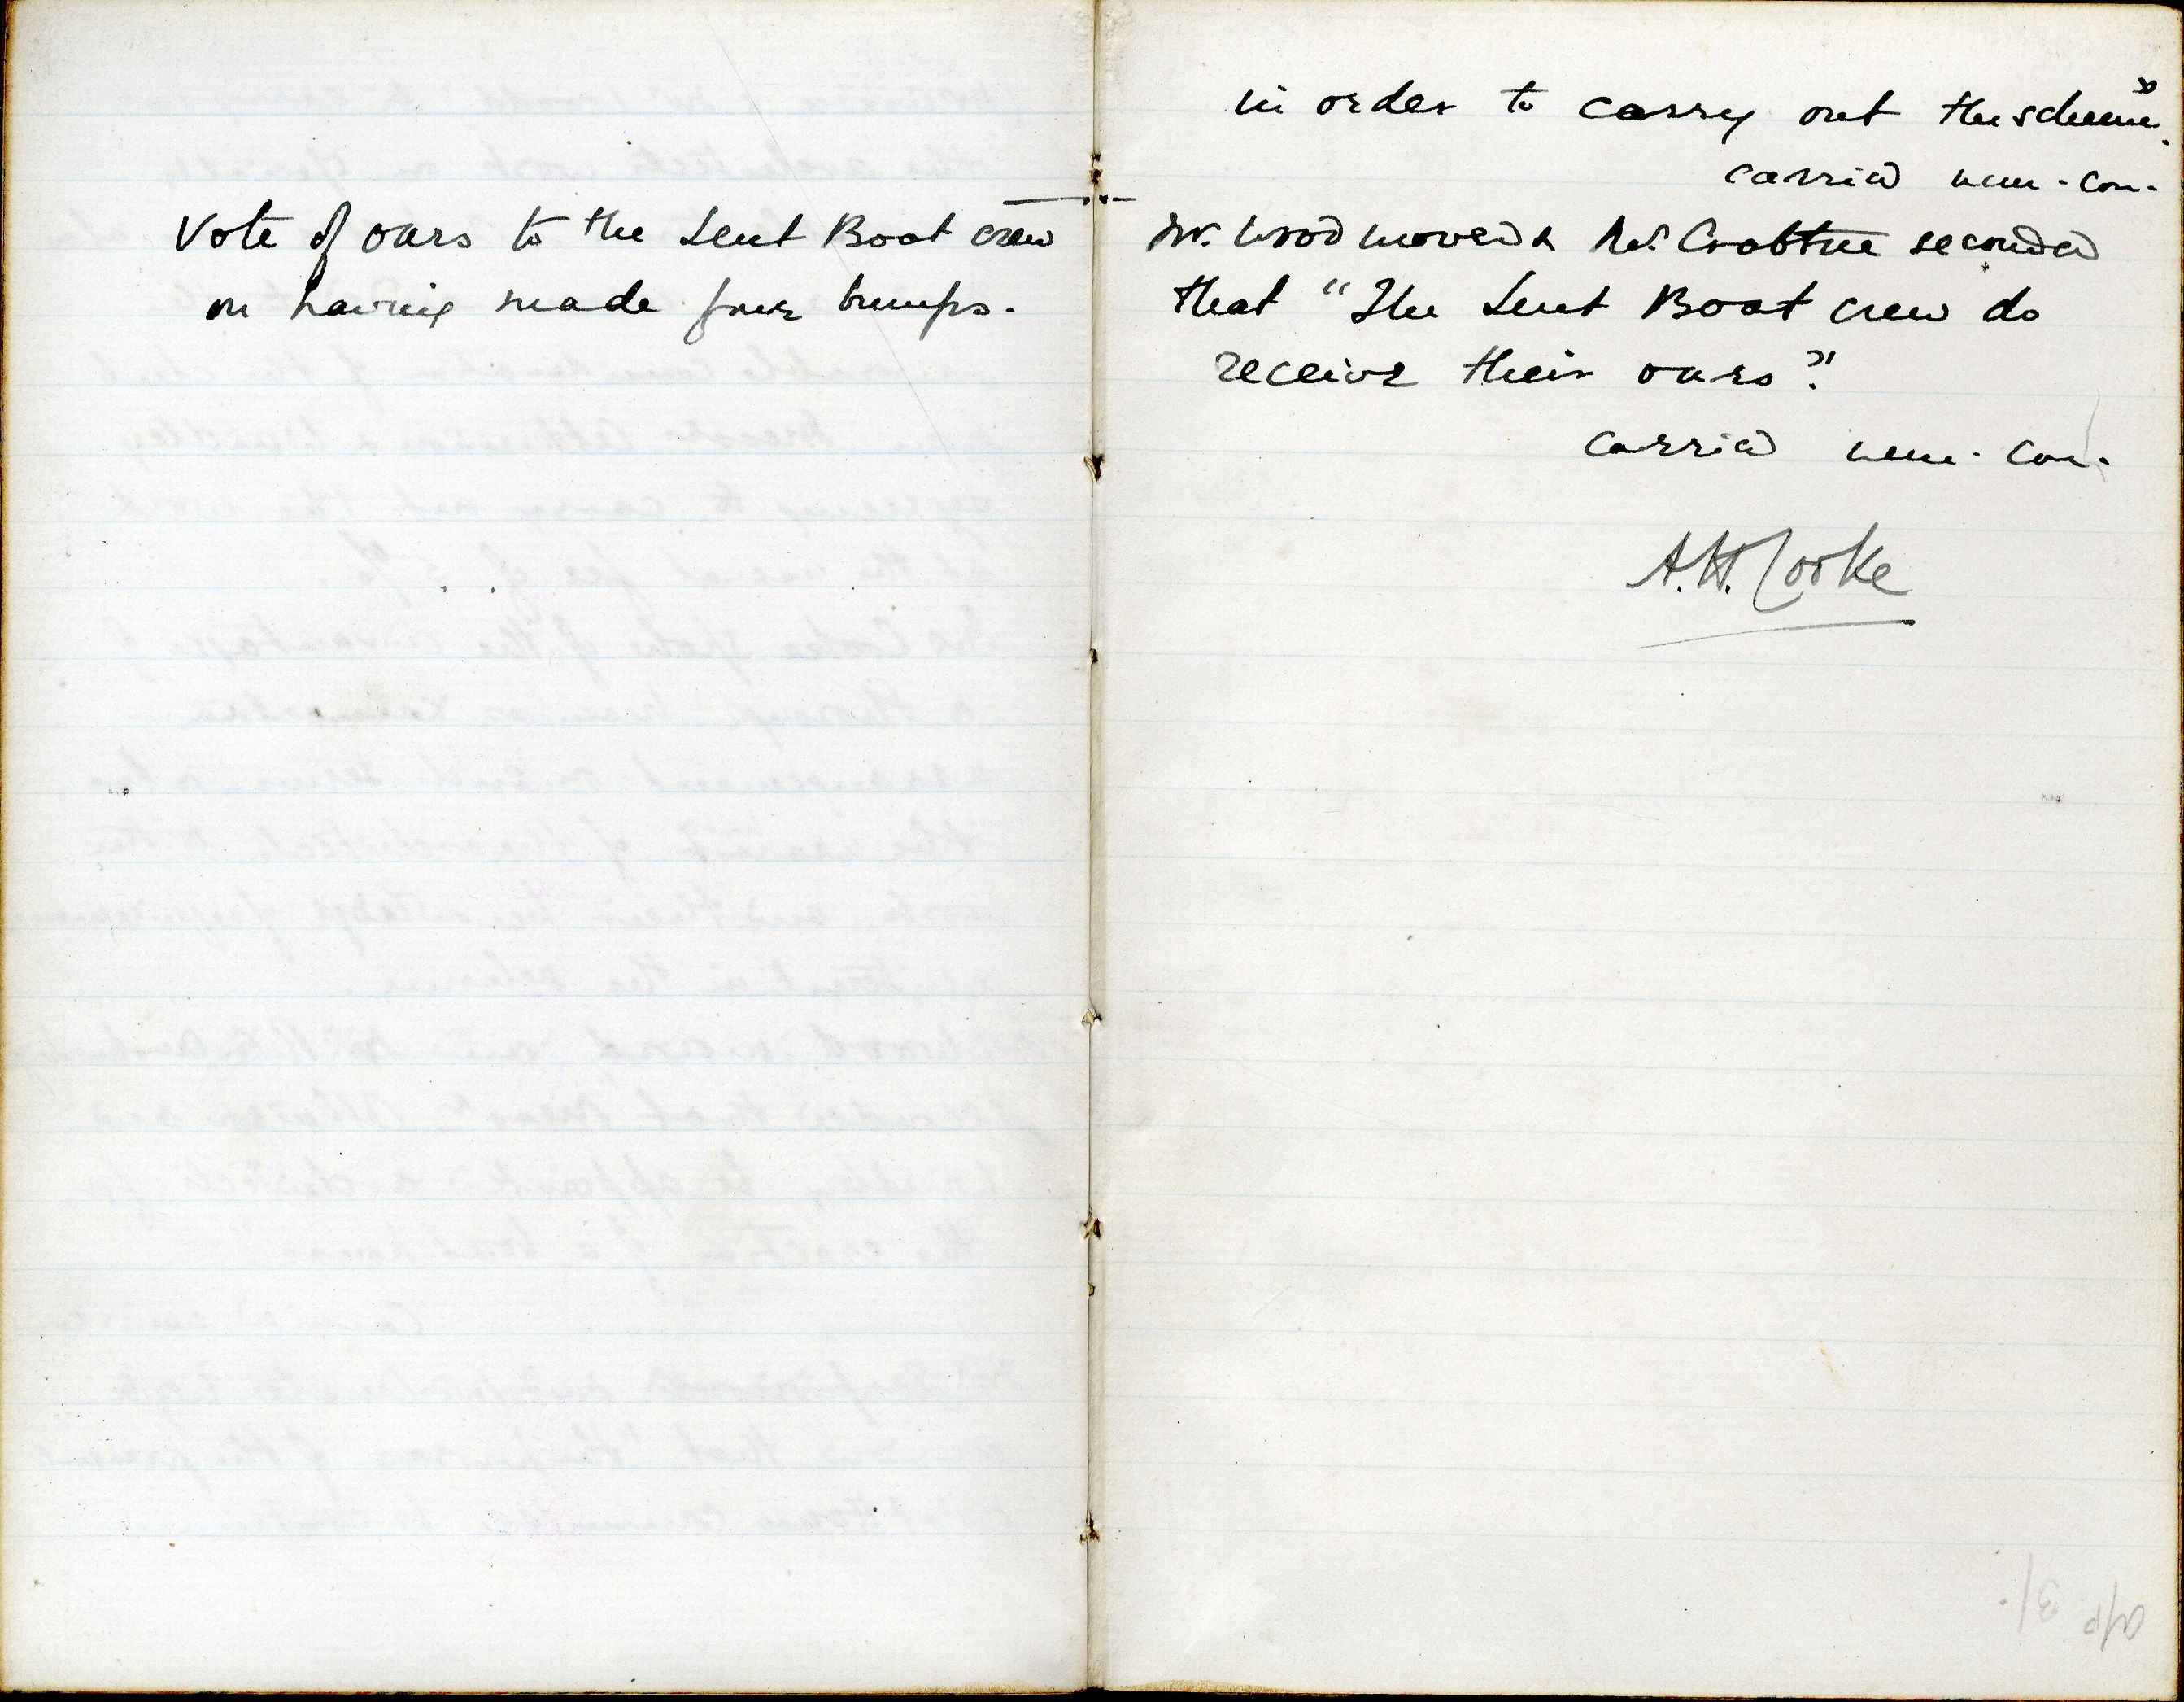 Vote of oars to the Lent Boat crew
on having made four bumps.
in order to carry out the scheme".
carried nem. con.
Mr. Wood moved & Mr. Crabtree seconded
that "The Lent Boat crew do
receive their oars".
carried nem. con.
A.H. Cooke